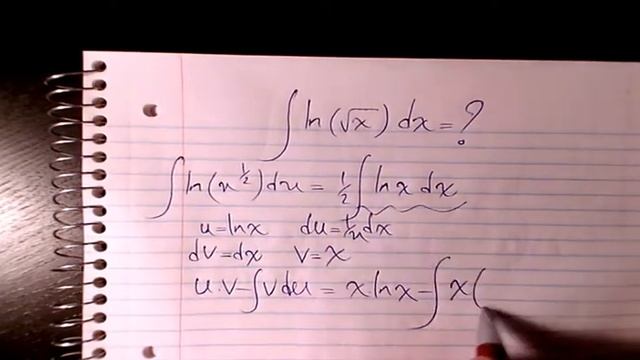 ∫ ln(√x) dx = ?
∫ ln(x^½) dx = ½ ∫ ln x dx
u = ln x   du = 1/x dx
dv = dx   v = x
u.v - ∫ v du = x ln x - ∫ x (